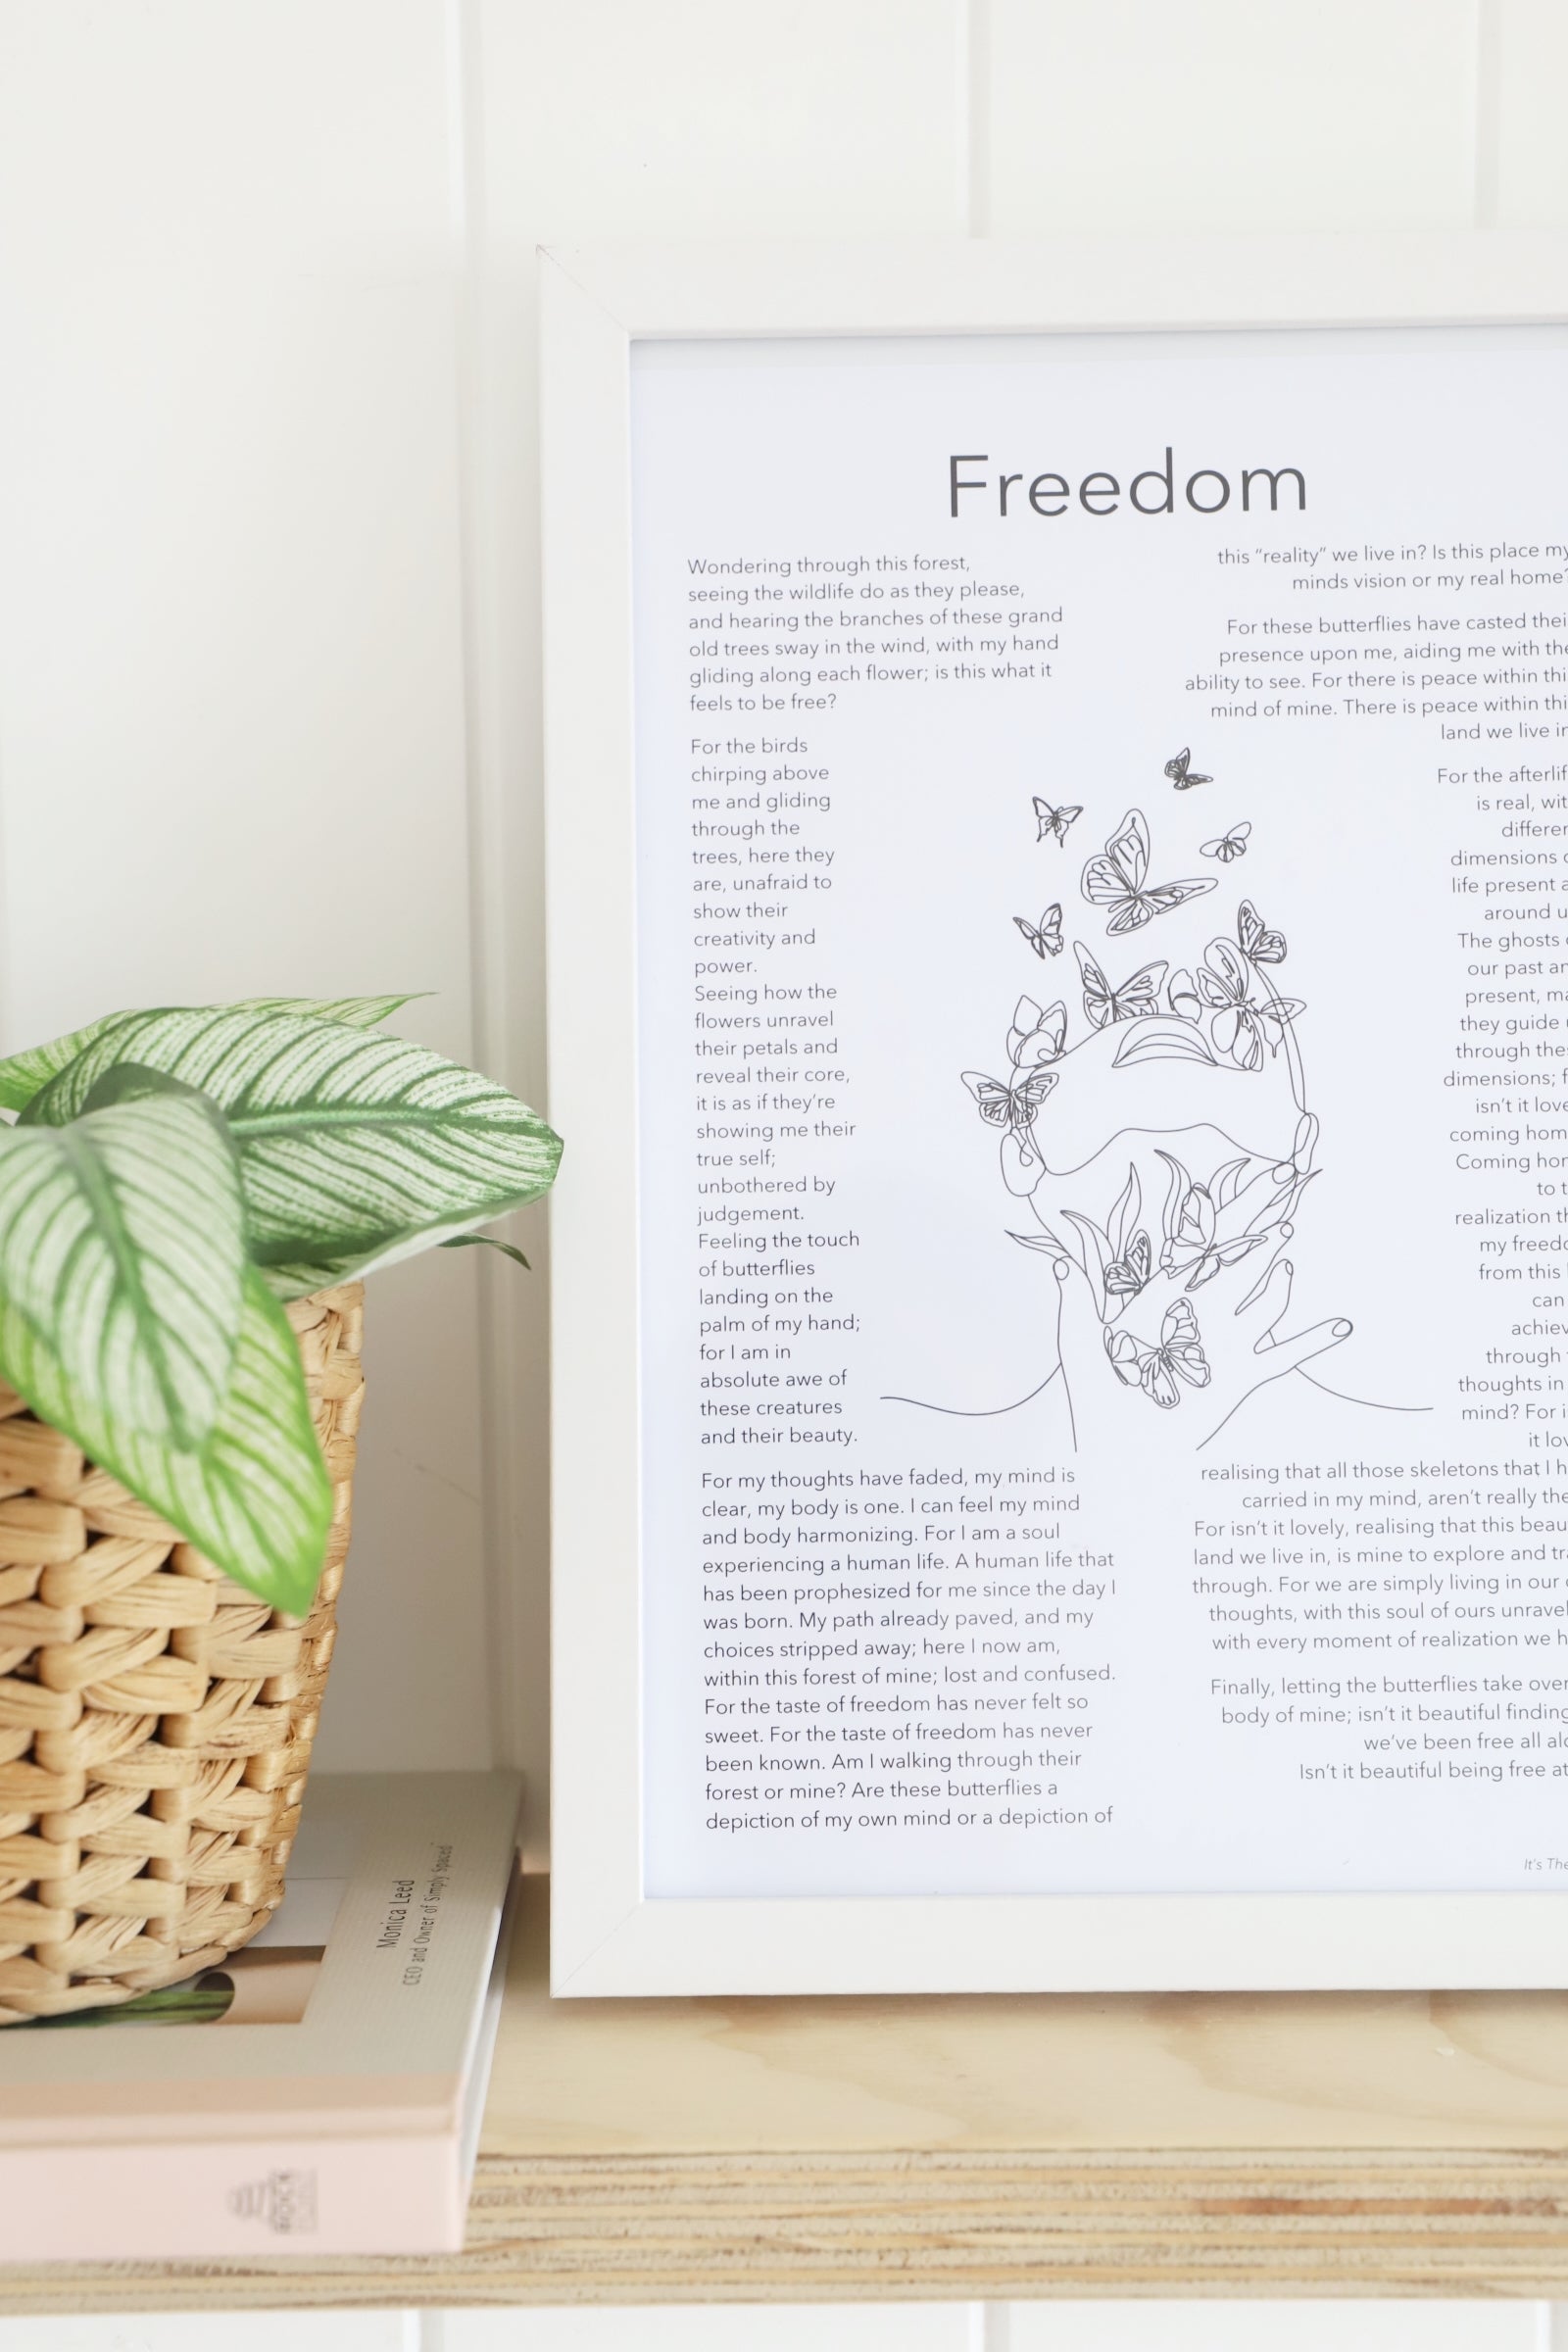 Freedom
Wondering through this forest,
seeing the wildlife do as they please,
and hearing the branches of these grand
old trees sway in the wind, with my hand
gliding along each flower; is this what it
feels to be free?
For the birds
chirping above
me and gliding
through the
trees, here they
are, unafraid to
show their
creativity and
power.
Seeing how the
flowers unravel
their petals and
reveal their core,
it is as if they're
showing me their
true self;
unbothered by
judgement.
Feeling the touch
of butterflies
landing on the
palm of my hand;
for I am in
absolute awe of
these creatures
and their beauty.
For my thoughts have faded, my mind is
clear, my body is one. I can feel my mind
and body harmonizing. For I am a soul
experiencing a human life. A human life that
has been prophesized for me since the day I
was born. My path already paved, and my
choices stripped away; here I now am,
within this forest of mine; lost and confused.
For the taste of freedom has never felt so
sweet. For the taste of freedom has never
been known. Am I walking through their
forest or mine? Are these butterflies a
depiction of my own mind or a depiction of
this "reality" we live in? Is this place my
minds vision or my real home?
For these butterflies have casted
presence upon me, aiding me with the
ability to see. For there is peace within
mind of mine. There is peace within
land we live
For the
is real,
dimensions
life present
around
The ghosts
our past
present,
they guide
through
dimensions;
isn't it
coming
Coming
to
realization
my
from this
can
through
thoughts in
mind? For
it
realising that all those skeletons that I
carried in my mind, aren't really
For isn't it lovely, realising that this
land we live in, is mine to explore and
through. For we are simply living in our
thoughts, with this soul of ours
with every moment of realization we
Finally, letting the butterflies take over
body of mine; isn't it beautiful finding
we've been free all
Isn't it beautiful being free
It's
Monica Leed
CEO and Owner of Simply Spaced